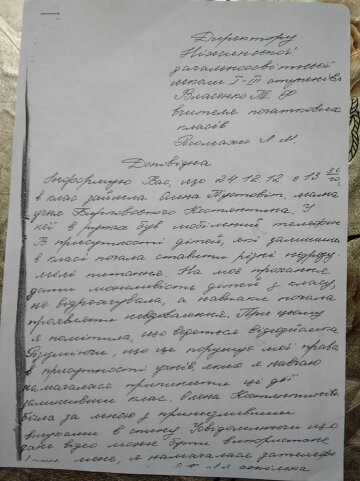 Директору
Ніжинської
загальноосвітньої
школи І-ІІІ ступенів
Власенко Т. Ф
вчителя початкових
класів
Л. М.
Доповідна
Інформую Вас, що 24.12.12 о 13
в клас зайшла Олена Пустовіт, мама
учня Костянтина. У
неї в руках був мобільний телефон
В присутності дітей, які залишились
в класі почала ставити різні недоре-
чні питання. На моє прохання
дати можливість дітей з класу,
не відреагувала, а навпаки почала
проявляти невдоволення. При цьому
я помітила, що ведеться відеозйомка
Розуміючи, що це порушує мої права
в присутності учнів, яких я навчаю
намагалася припинити ці дії
залишивши клас. Олена Костянтинівна
йшла за мною з принизливими
вигуками в спину. Усвідомлюючи що
дане відео може бути використане
мене, я намагалася